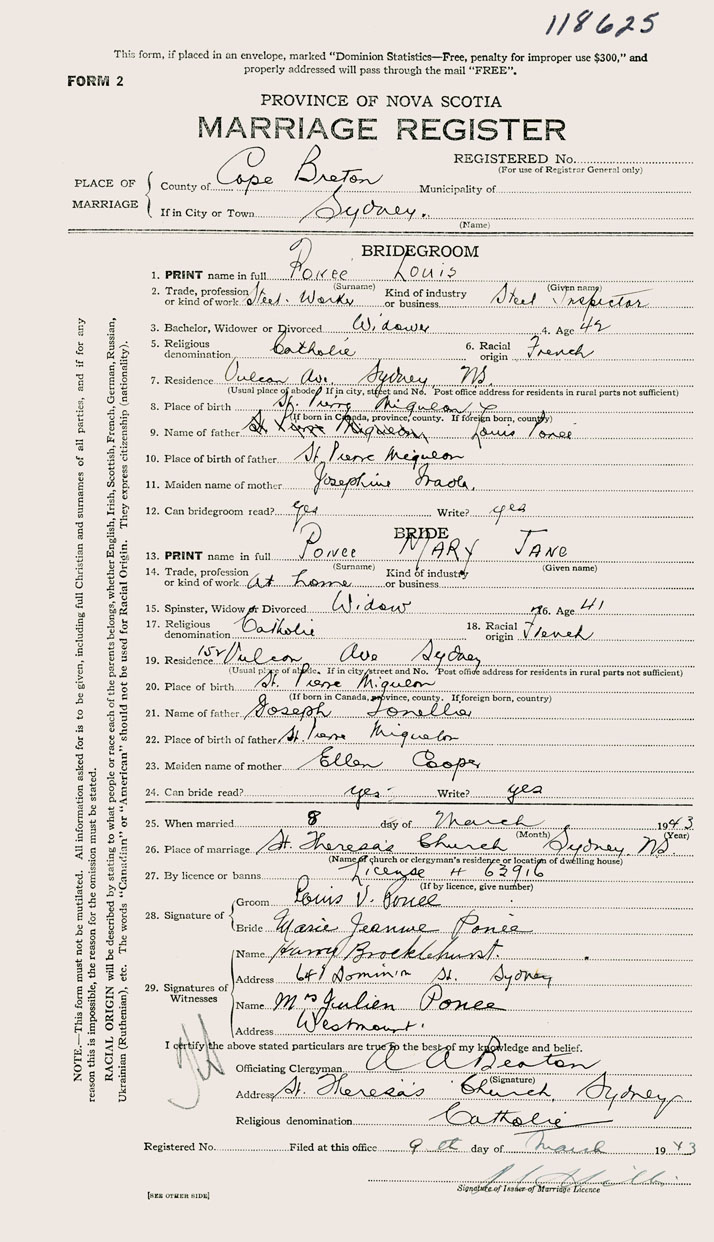 118625
This form, if placed in an envelope, marked "Dominion Statistics—Free, penalty for improper use $300," and
properly addressed will pass through the mail "FREE".
FORM 2
PROVINCE OF NOVA SCOTIA
MARRIAGE REGISTER
REGISTERED No.
(For use of Registrar General only)
PLACE OF MARRIAGE
County of Cape Breton Municipality of
If in City or Town Sydney.
(Name)
BRIDEGROOM
1. PRINT name in full Ponee Louis
(Surname) (Given name)
2. Trade, profession or kind of work Steel Worker Kind of industry or business Steel Inspector
3. Bachelor, Widower or Divorced Widower 4. Age 42
5. Religious denomination Catholic 6. Racial origin French
7. Residence Vulcan Av. Sydney NS.
(Usual place of abode. If in city, street and No. Post office address for residents in rural parts not sufficient)
8. Place of birth St. Pierre Miquelon
(If born in Canada, province, county. If foreign born, country)
9. Name of father St Pierre Miquelon Louis Ponee
10. Place of birth of father St. Pierre Miquelon
11. Maiden name of mother Josephine
12. Can bridegroom read? yes Write? yes
BRIDE
13. PRINT name in full Ponee MARY JANE
(Surname) (Given name)
14. Trade, profession or kind of work at home Kind of industry or business
15. Spinster, Widow or Divorced Widow 16. Age 41
17. Religious denomination Catholic 18. Racial origin French
19. Residence 152 Vulcan Ave Sydney
(Usual place of abode. If in city, street and No. Post office address for residents in rural parts not sufficient)
20. Place of birth St. Pierre Miquelon
(If born in Canada, province, county. If foreign born, country)
21. Name of father Joseph
22. Place of birth of father St. Pierre Miquelon
23. Maiden name of mother Ellen Cooper
24. Can bride read? yes Write? yes
25. When married 8 day of March 1943
(Month) (Year)
26. Place of marriage St. Theresa's Church Sydney NS.
(Name of church or clergyman's residence or location of dwelling house)
27. By licence or banns License # 63916
(If by licence, give number)
28. Signature of
Groom Louis V. Ponee
Bride Marie Jeanne Ponée
29. Signatures of Witnesses
Name Harry Brocklehurst.
Address 641 Dominion St. Sydney
Name Mrs Julien Ponee
Address Westmount.
I certify the above stated particulars are true to the best of my knowledge and belief.
Officiating Clergyman A A Beaton
(Signature)
Address St. Theresa's Church, Sydney
Religious denomination Catholic
Registered No. Filed at this office 9 th day of March 1943
Signature of Issuer of Marriage Licence
[SEE OTHER SIDE]
NOTE.—This form must not be mutilated. All information asked for is to be given, including full Christian and surnames of all parties, and if for any
reason this is impossible, the reason for the omission must be stated.
RACIAL ORIGIN will be described by stating to what people or race each of the parents belongs, whether English, Irish, Scottish, French, German, Russian,
Ukrainian (Ruthenian), etc. The words "Canadian" or "American" should not be used for Racial Origin. They express citizenship (nationality).